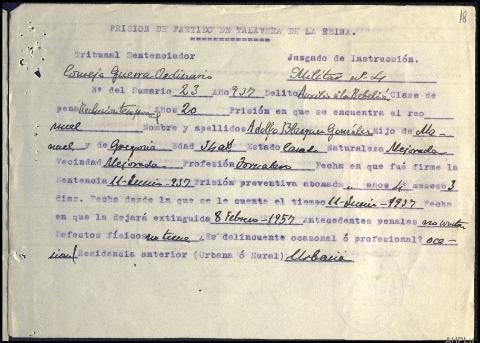 18
PRISION DE PARTIDO DE TALAVERA DE LA REINA.
Tribunal Sentenciador Juzgado de Instrucción.
Consejo Guerra Ordinario Militar nº 4
Nº del Sumario 23 Año 937 Delito Auxilio a la Rebelión Clase de
pena Reclusión temporal Años 20 Prisión en que se encuentra el reo
Nombre y apellidos Adolfo Blazquez González Hijo de Ma-
nuel y de Gregoria Edad 34 años Estado Casado Naturaleza Mejorada
Vecindad Mejorada Profesión Jornalero Fecha en que fué firme la
Sentencia 11-Junio-937 Prisión preventiva abonada " años 4 meses 3
dias. Fecha desde la que se le cuenta el tiempo 11-Junio-1937 Fecha
en que la dejará extinguida 8 Febrero-1957 Antecedentes penales no constan
Defectos físicos no tiene ¿Es delincuente ocasonal ó profesional? oca-
sional Residencia anterior (Urbana ó Rural) Urbana